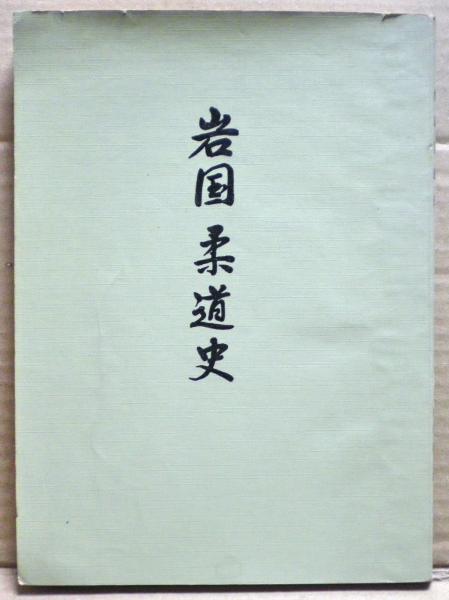 岩国 柔道史